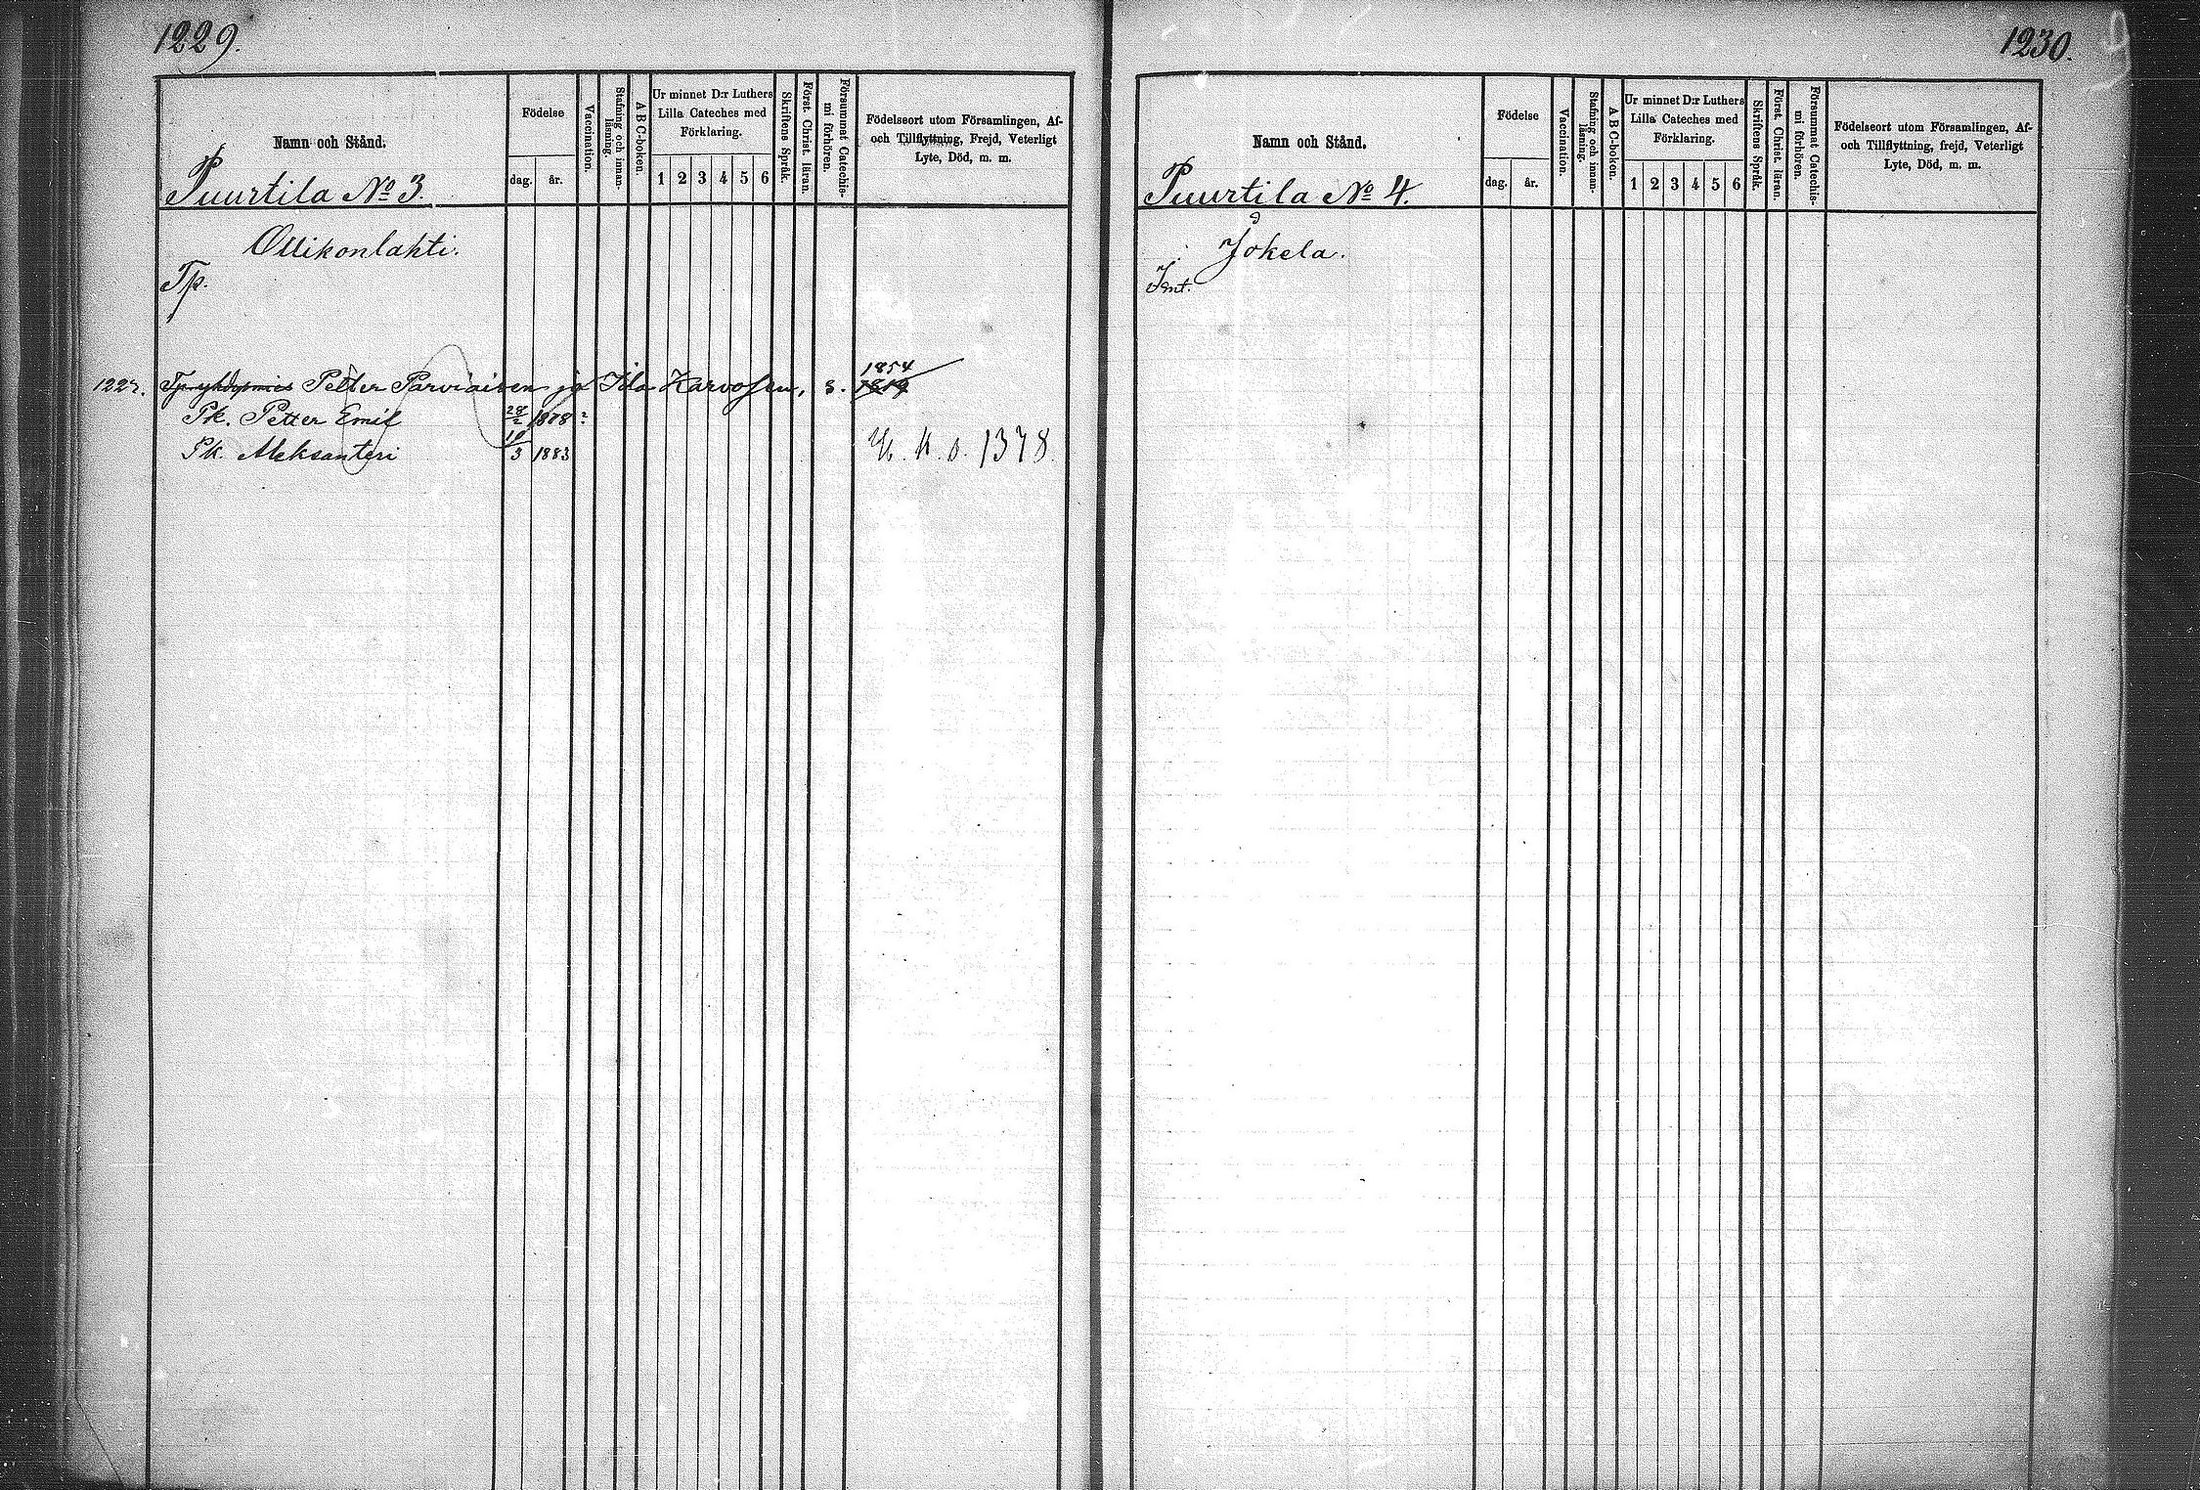 1229.
Namn och Stånd.
Födelse
dag. år.
Vaccination.
Stafning och innan-
läsning.
A B C-boken.
Ur minnet D:r Luthers
Lilla Cateches med
Förklaring.
1 2 3 4 5 6
Skriftens Språk.
Först. Christ. läran.
Försummat Catechis-
mi förhören.
Födelseort utom Församlingen, Af-
och Tillflyttning, Frejd, Veterligt
Lyte, Död, m. m.
Puurtila No 3.
Ollikonlahti.
Tp.
1854
1227. Petter Parviaisen ja Ida Karvosen, s. 1814
Pk. Petter Emil 28/2 1878
Pk. Aleksanteri 10/3 1883
K. k. s. 1378.
1230.
Namn och Stånd.
Födelse
dag. år.
Vaccination.
Stafning och innan-
läsning.
A B C-boken.
Ur minnet D:r Luthers
Lilla Cateches med
Förklaring.
1 2 3 4 5 6
Skriftens Språk.
Först. Christ. läran.
Försummat Catechis-
mi förhören.
Födelseort utom Församlingen, Af-
och Tillflyttning, frejd, Veterligt
Lyte, Död, m. m.
Puurtila No 4.
Jokela.